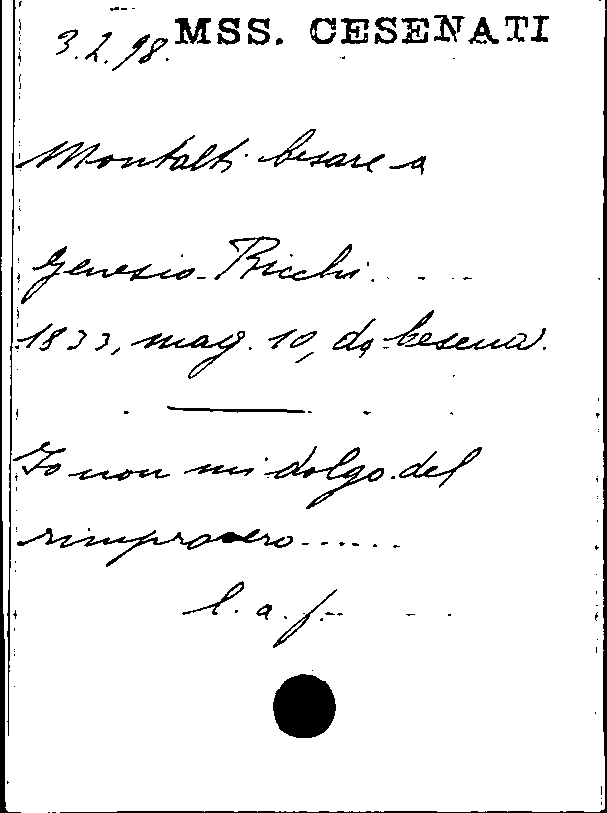 3.2.98. MSS. CESENATI
Montalti Cesare a
Genesio Ricchi.
1833, mag. 10, da Cesena.
Io non mi dolgo del
rimprovero......
l. a. f.